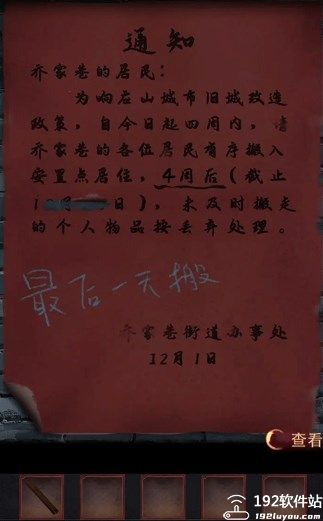 通知
乔家巷的居民：
为响应山城市旧城改造
政策，自今日起四周内，请
乔家巷的各位居民有序搬入
安置点居住，4周后（截止
1 月 日），未及时搬走
的个人物品按丢弃处理。
最后一天搬
乔家巷街道办事处
12月1日
查看
192软件站
192luyou.com